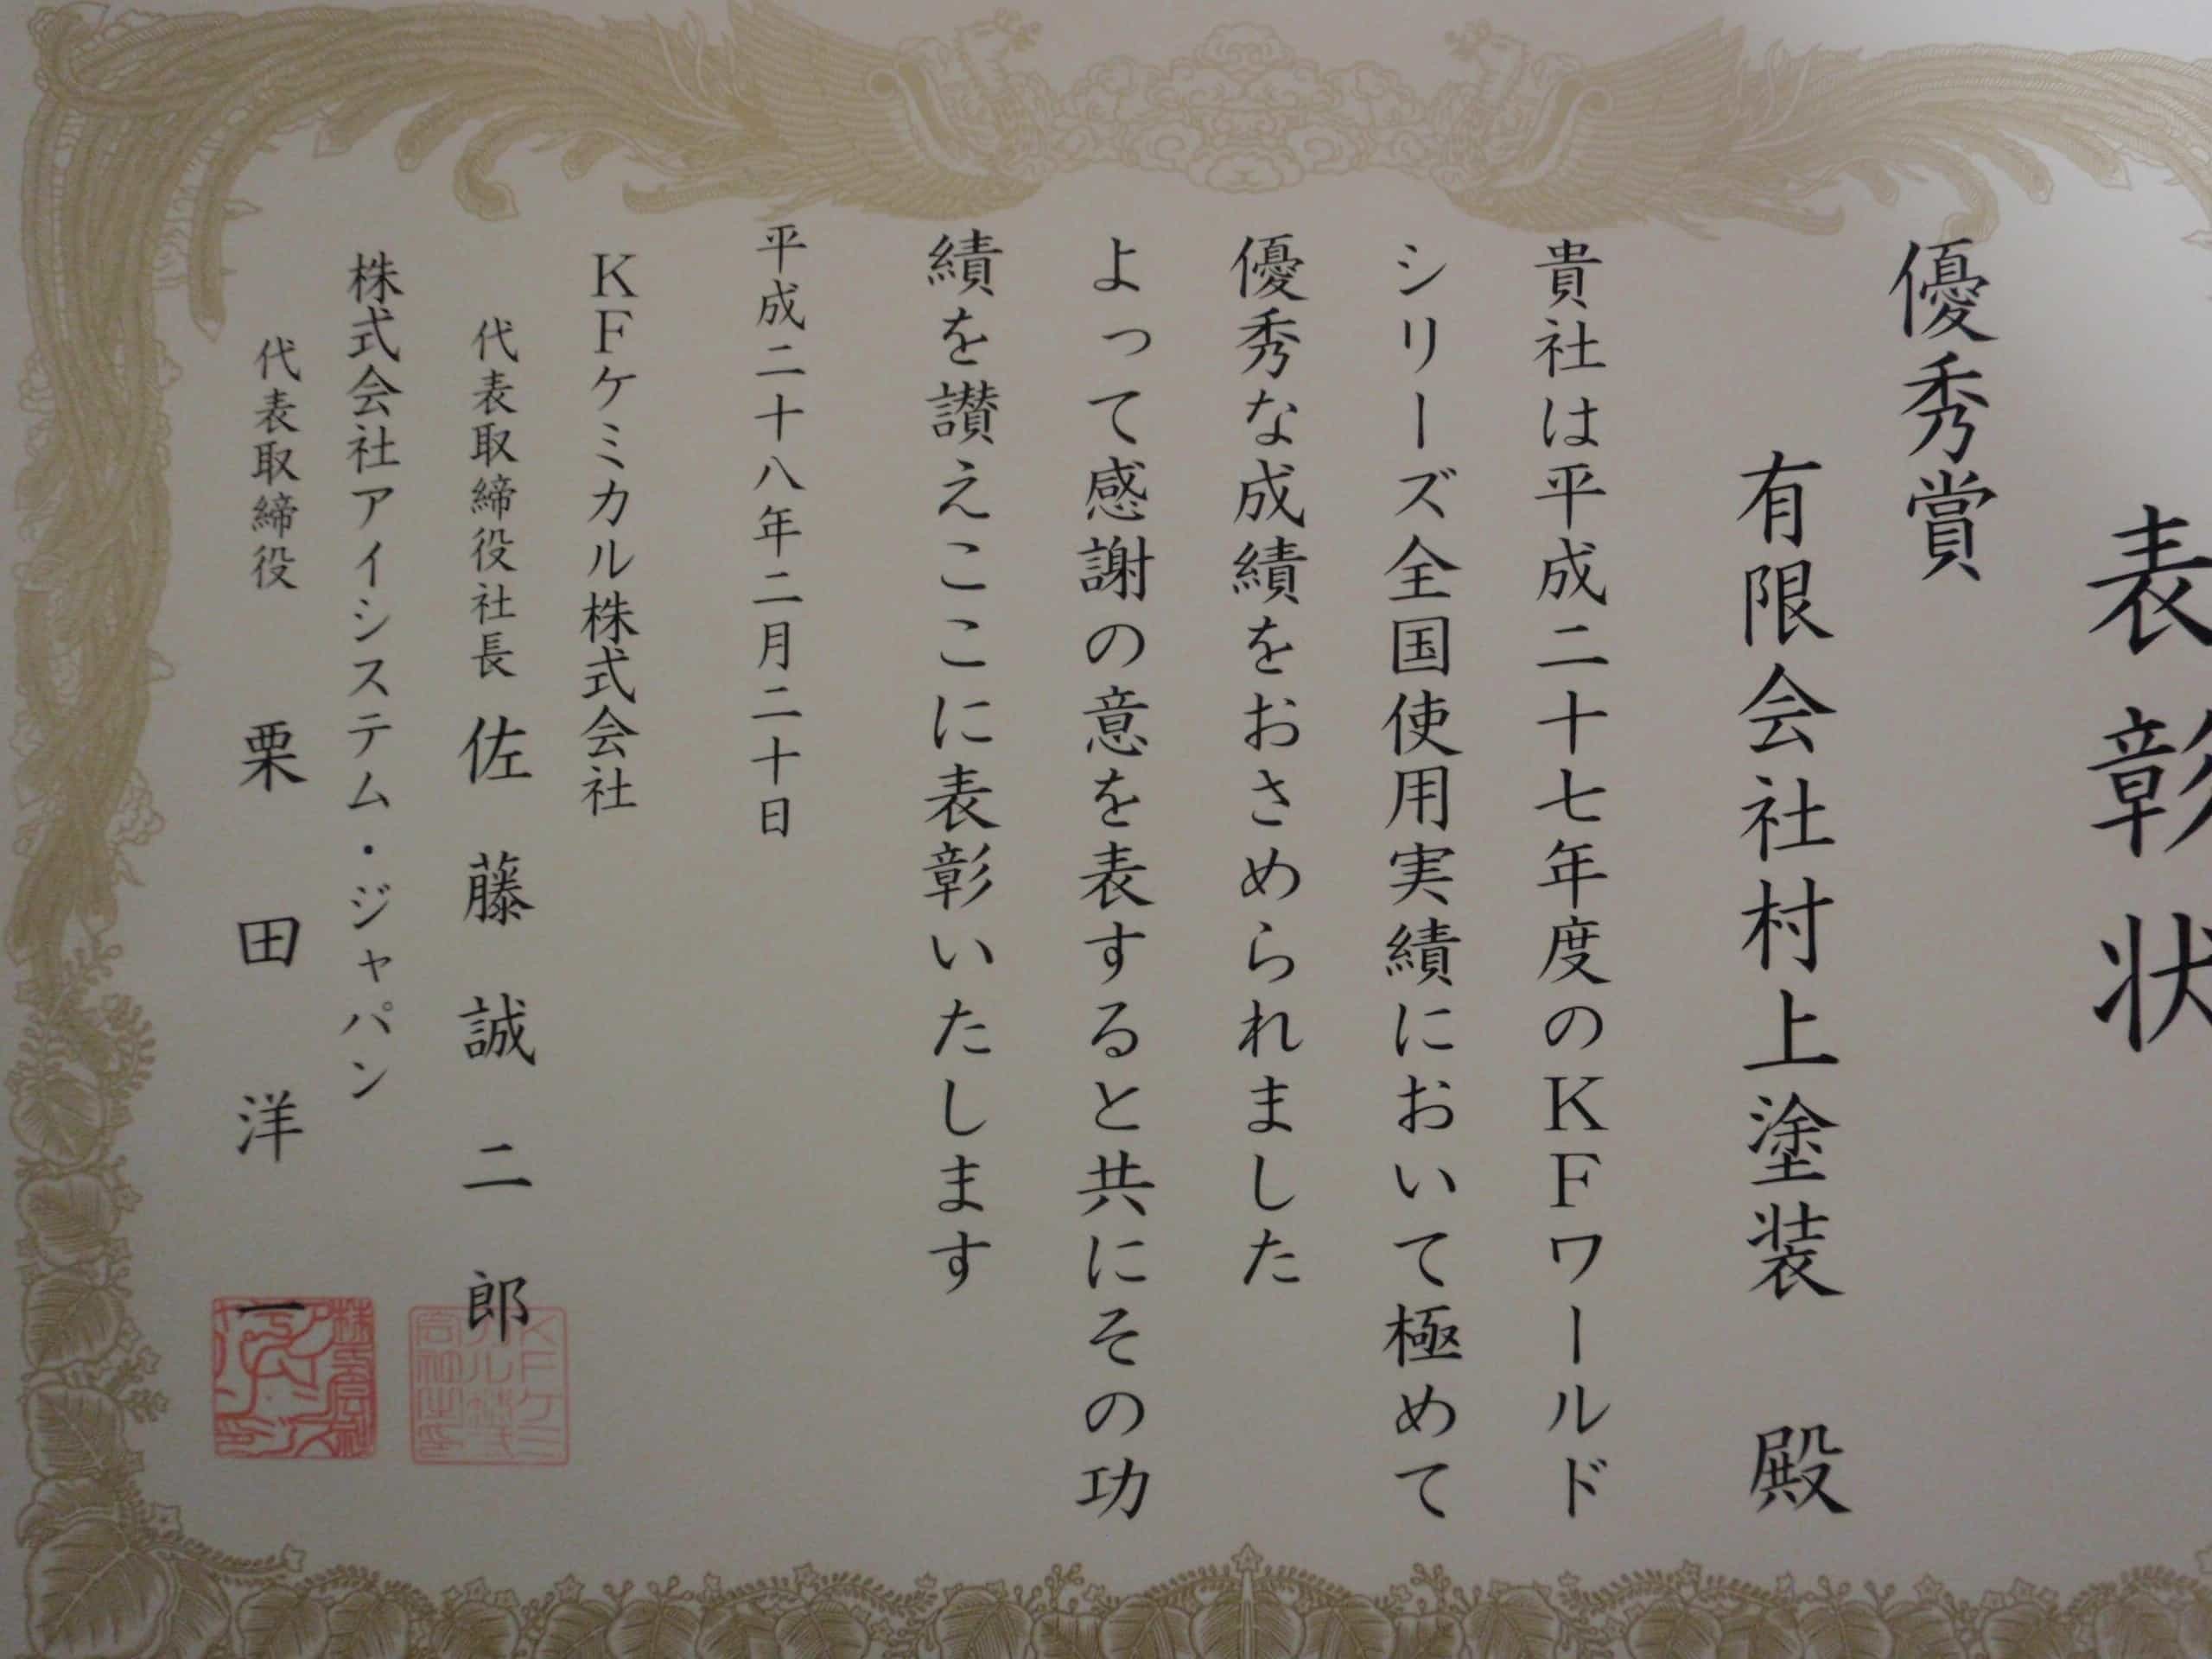 表彰状
優秀賞
有限会社村上塗装 殿
貴社は平成二十七年度のKFワールド
シリーズ全国使用実績において極めて
優秀な成績をおさめられました
よって感謝の意を表すると共にその功
績を讃えここに表彰いたします
平成二十八年二月二十日
KFケミカル株式会社
代表取締役社長 佐藤誠二郎
株式会社アイシステム・ジャパン
代表取締役 栗田洋一